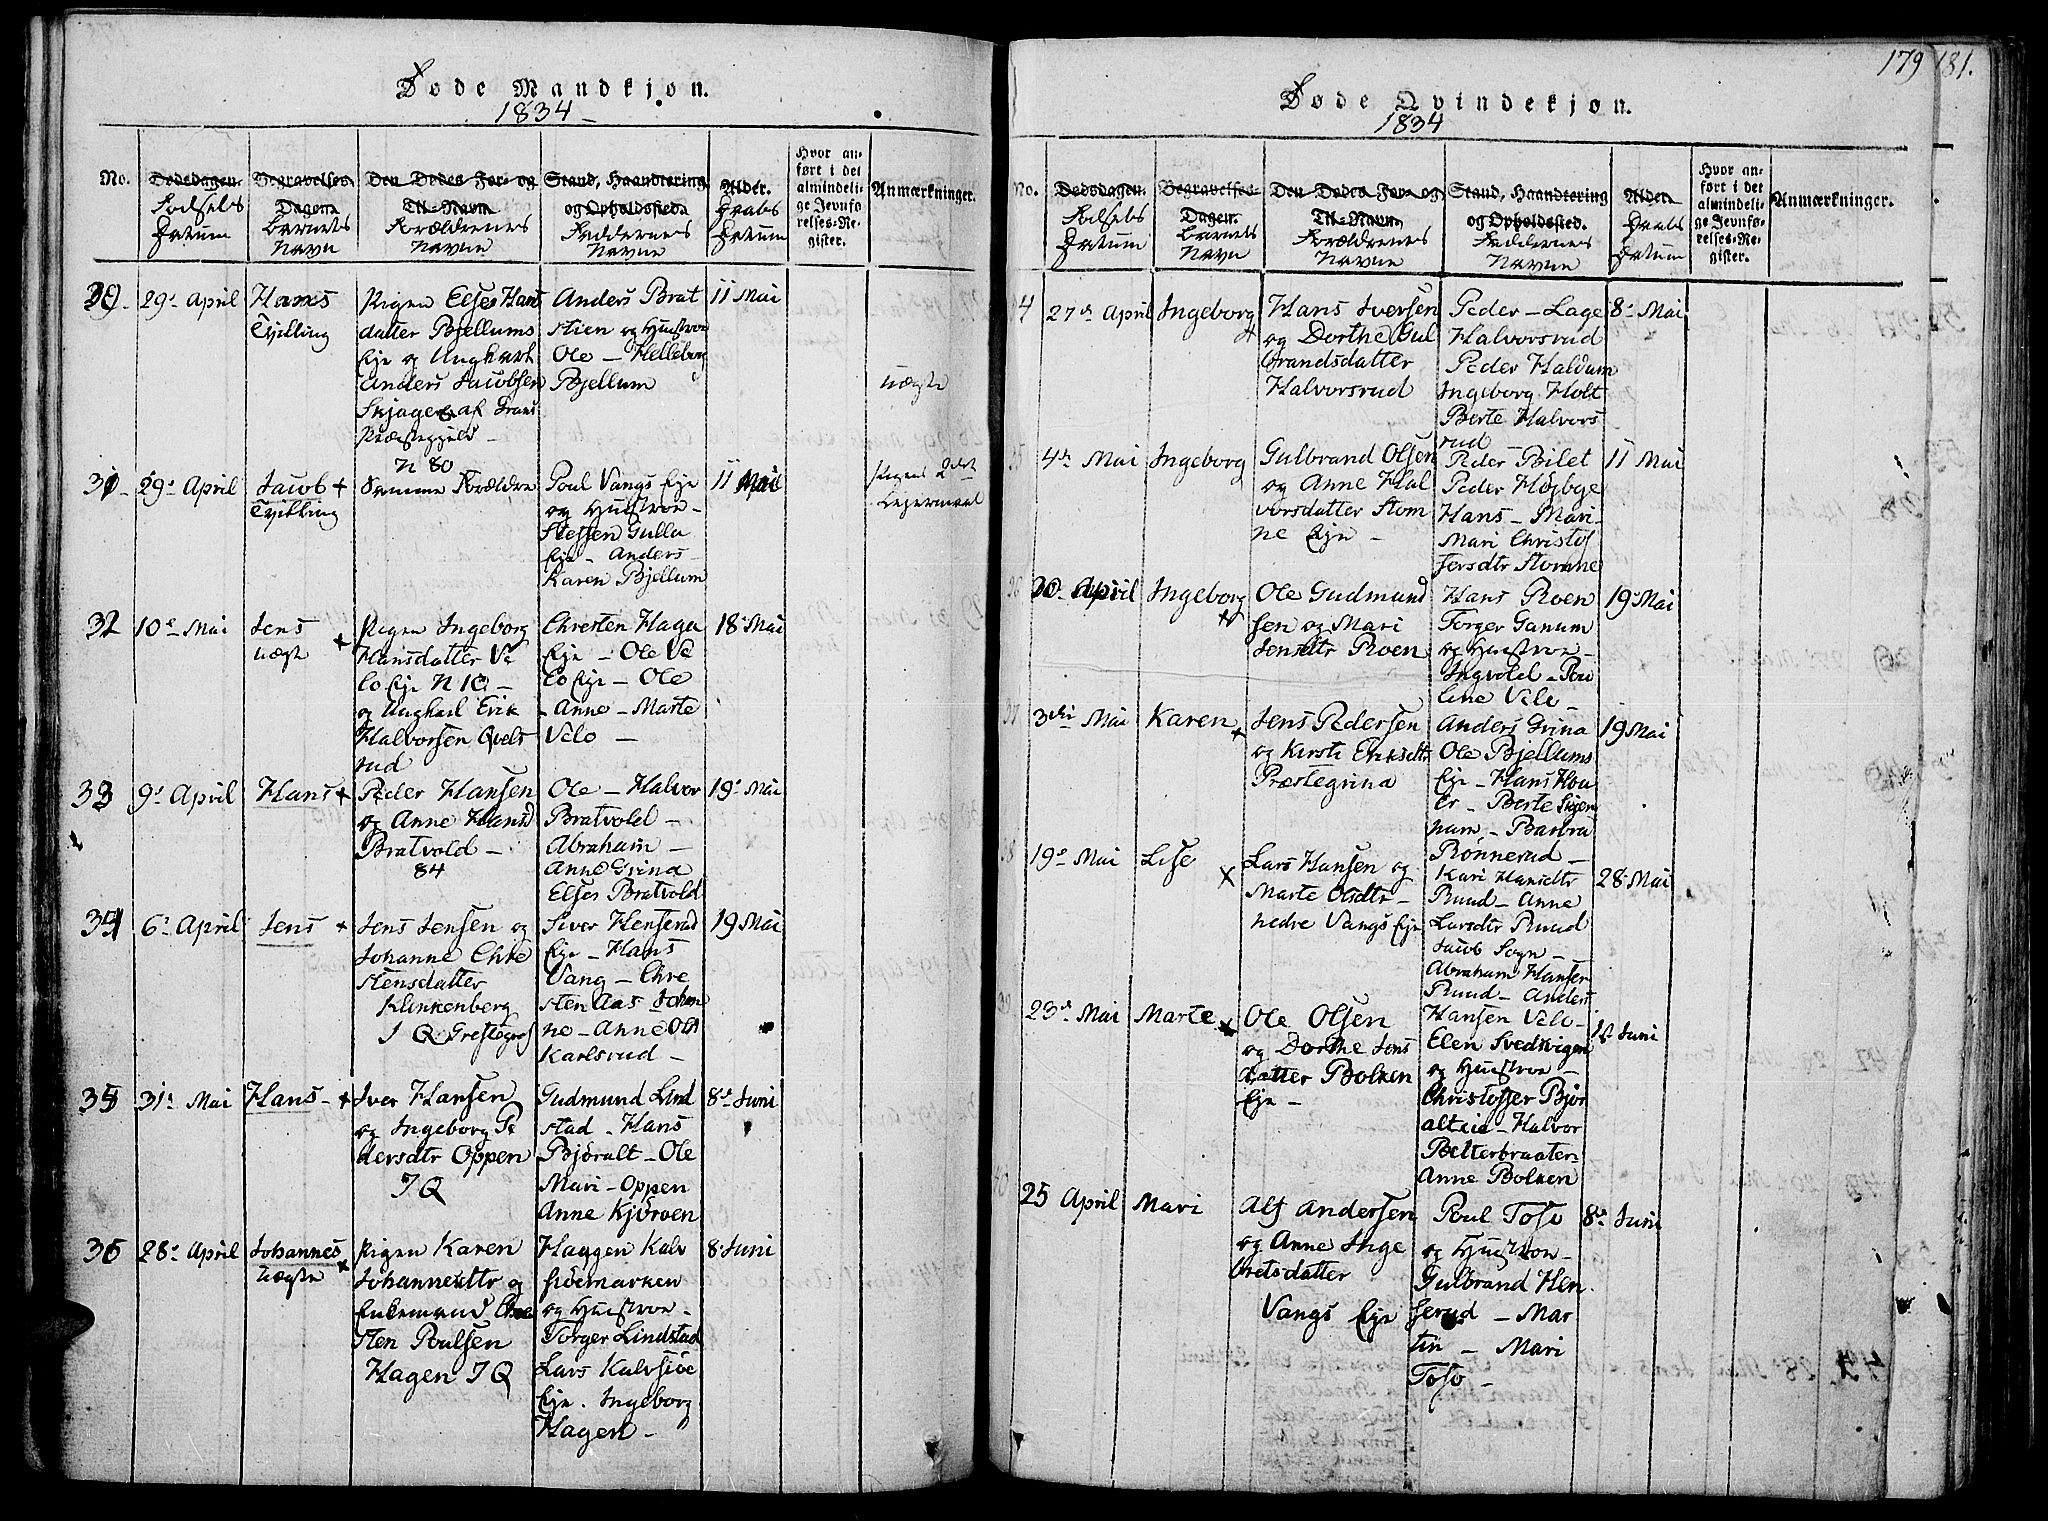 179 181.
Døde Mandkjøn.
1834
No.
Dødsdagen.
Fødsels
Datum
Begravelses-
Dagen.
Barnets
Navn
Den Dødes For- og
Til-Navn
Forældrenes
Navne
Stand, Haandtering
og Opholdssted.
Faddernes
Navne
Alder.
Daabs
Datum
Hvor an-
ført i det
almindeli-
ge Jevnfø-
relses-Re-
gister.
Anmærkninger.
30 29de April Hans
Tvilling
Pigen Elses Hans
datter Bjellums
Eje og Ungkarl
Anders Jacobsen
Skjager af Grans
Præstegjeld
N 80
Anders Brat
stien og Hustroe
Ole - Helleborg
Bjellum
11 Mai
uægte
31 29de April Jacob +
Tvilling
Samme Forældre
Poul Vangs Eje
og Hustroe -
Steffen Gulla
Eje - Anders -
Karen Bjellum
11 Mai
Pigens 2det
Lejermaal
32 10de Mai Jens
uægte +
Pigen Ingeborg
Hansdatter Ve
lo Eje N 10 -
og Ungkarl Erik
Halvorsen Qvels
rud
Chresten Haga
Eje - Ole Ve
lo Eje - Ole
- Anne - Marte
Velo -
18de Mai
33 9de April Hans +
Peder Hansen
og Anne Hansd
Bratvold -
84
Ole - Halvor
Bratvold -
Abraham -
Anne Grina
Elses Bratvold
19de Mai
34 6de April Jens +
Jens Jensen og
Johanne Chre
stensdatter
Klinkenberg
Siver Henserud
Eje - Hans
Vang - Chre
sten Aas Johan
ne - Anne Ols
Karlsrud -
19 Mai
35 31de Mai Hans - +
Iver Hansen
og Ingeborg Pe
dersdtr Oppen
I Q
Gudmund Lind
stad - Hans
Bjøralt - Ole
Mari - Oppen
Anne Kjørven
8de Juni
36 28de April Johannes
uægte +
Pigen Karen
Johannesdtr og
Enkemand Chre
sten Poulsen
Hagen I Q
Haagen Kalv
siøemarken
og Hustroe -
Torger Lindstad
Lars Kalvsiøe
Eje. Ingeborg
Hagen -
8de Juni
Døde Qvindekjøn.
1834
No.
Dødsdagen.
Fødsels
Datum
Begravelses-
Dagen.
Barnets
Navn
Den Dødes For- og
Til-Navn
Forældrenes
Navne
Stand, Haandtering
og Opholdssted.
Faddernes
Navne
Alder.
Daabs
Datum
Hvor an-
ført i det
almindeli-
ge Jevnfø-
relses-Re-
gister.
Anmærkninger.
4 27de April Ingeborg +
Hans Iversen
og Dorthe Gul
brandsdatter
Halvorsrud
Peder - Lage
Halvorsrud
Peder Haldum
Ingeborg Holt
Berte Halvors
rud -
8de Mai
35 4de Mai Ingeborg
Gulbrand Olsen
og Anne Hal
vorsdatter Stom
ne Eje -
Peder Bilet
Peder Højbye
Hans - Mari -
Mari Christof
fersdtr Stomne
11 Mai
36 30 April Ingeborg +
Ole Gudmund
sen og Mari
Jensdtr Roen
Hans Roen
Torger Ganum
og Hustroe -
Ingvold - Pau
line Velo -
19de Mai
37 3die Mai Karen +
Jens Pedersen
og Kirsti Eriksdtr
Præstegrina
Anders Grina
Ole Bjellums
Eje - Hans Hou
er - Berte Sigen
ham - Barbra
Rønnerud -
19 Mai
38 19de Mai Lise +
Lars Hansen og
Marte Olsdtr -
nedre Vangs Eje
Kari Hansdtr
Ruud - Anne
Larsdtr Ruud
Jacob Sogn -
Abraham Hansen
Ruud - Anders
Hansen Velo -
28de Mai
39 23de Mai Marte +
Ole Olsen
og Dorthe Jens
datter Bolken
Eje -
Elen Svedkvigen
og Hustroe -
Christoffer Bjør
alteie - Halvor
Petterbraaten
Anne Bolken
1ste Juni
40 25 April Mari
Alf Andersen
og Anne Inge
bretsdatter
Vangs Eje
Poul Toso
og Hustroe -
Gulbrand Hen
serud - Mar
tin - Mari
Toso -
8de Juni